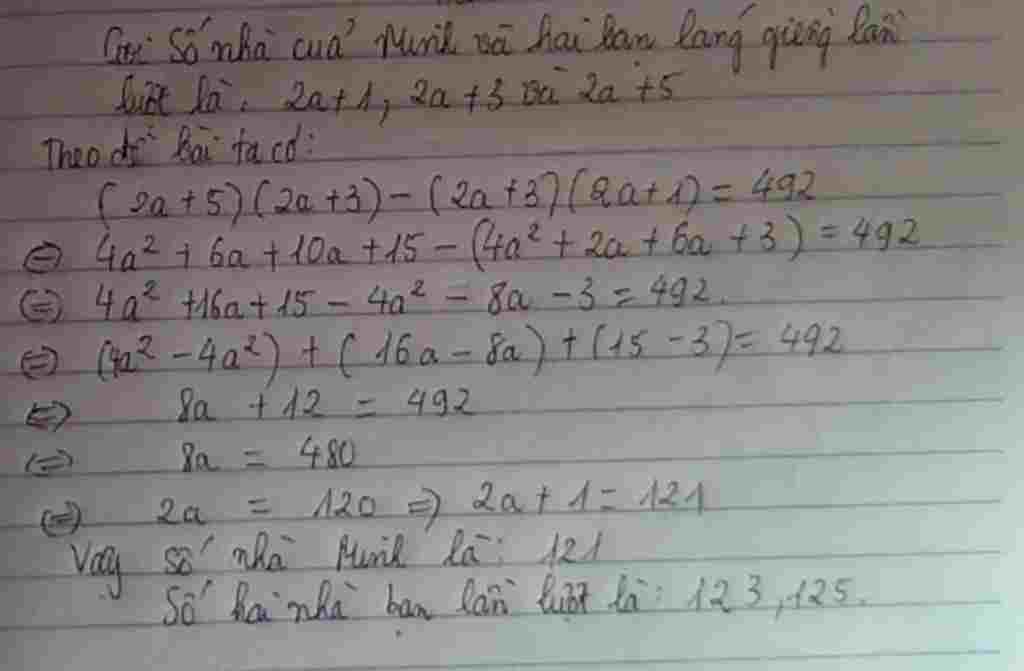 Gọi số nhà của Minh và hai bạn láng giềng lần
lượt là: 2a+1, 2a+3 và 2a+5
Theo đề bài ta có:
(2a+5)(2a+3)-(2a+3)(2a+1)=492
⇔ 4a²+6a+10a+15-(4a²+2a+6a+3)=492
⇔ 4a²+16a+15-4a²-8a-3=492.
⇔ (4a²-4a²)+(16a-8a)+(15-3)=492
⇔ 8a+12=492
⇔ 8a=480
⇔ 2a=120 ⇒ 2a+1=121
Vậy số nhà Minh là: 121
Số hai nhà bạn lần lượt là: 123, 125.